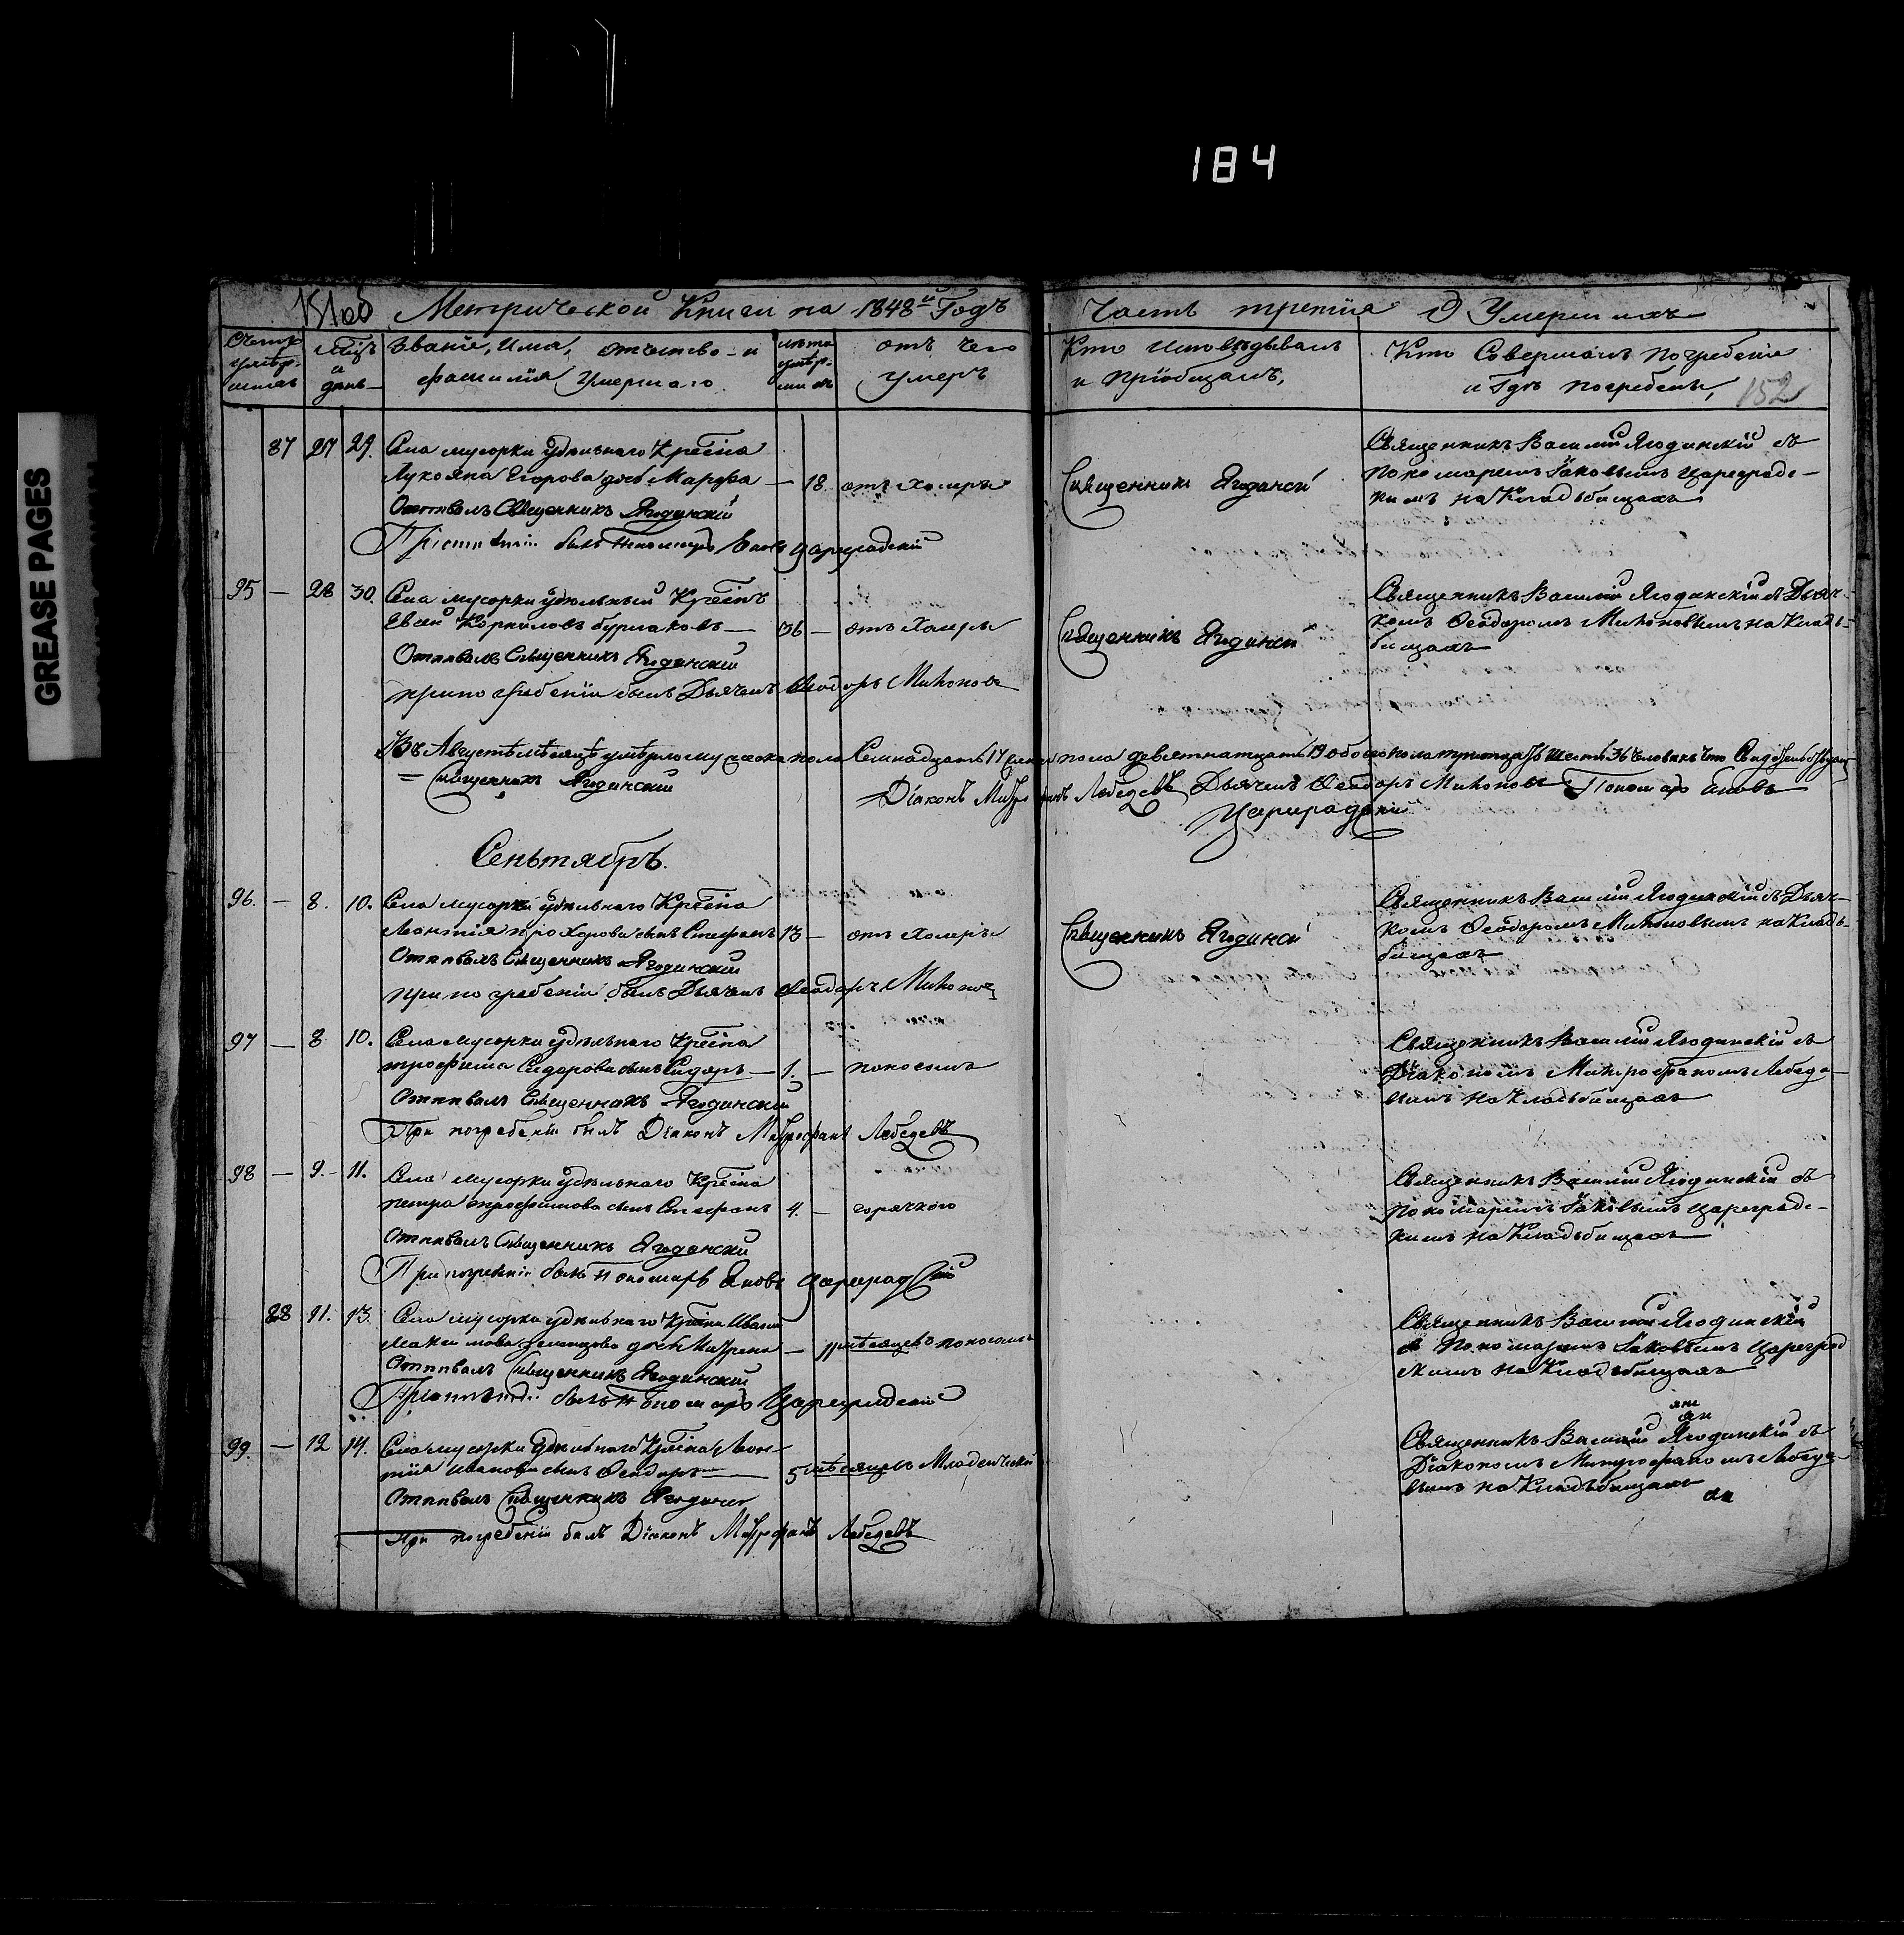 184
GREASE PAGES
151об Метрической Книги на 1848й Годъ
Часть третия О Умершихъ
Счетъ умѣр-шихъ
Мѣцъ и день
Званіе, Имя, отчество и фамилія Умершаго.
лѣта умѣр-шихъ
отъ чего умеръ
Кто Исповѣдывалъ и Пріобщалъ,
Кто Совершалъ погребеніе и Гдѣ погребены,
152
87 27 29. Села мусорки удѣльнаго Крестна
Лукояна Егорова дочь Марфа — 18. отъ Холеры
Отпѣвалъ Священникъ Ягодинскій
былъ Пономарь Яковъ Цареградскій
Священникъ Ягодинскій
Священникъ Василій Ягодинскій съ
Пономаремъ Іаковымъ Цареградс-
кимъ на Кладьбищахъ
95 — 28 30. Села мусорки удѣльный Крестнъ
Евсей Корниловъ бурлаковъ — 36 — отъ Холеры
Отпѣвалъ Священникъ Ягодинскій
при погребеніи былъ Дьячекъ Ѳеодоръ Миhоновъ
Священникъ Ягодинскій
Священникъ Василій Ягодинскій съ Дьяч-
комъ Ѳеодоромъ Миhоновымъ на Кладь-
бищахъ
Въ Августѣ мѣсяцѣ умѣрло мужеска пола Семнадцать 17 женска пола девятнатцать 19 обоего пола тритцать шесть 36 человекъ Что Свидѣтельствуемъ
Священникъ Ягодинскій
Діаконъ Митрофанъ Лебедевъ Дьячекъ Ѳеодоръ Миhоновъ Пономарь Яковъ
Цареградскій
Сентябрь.
96. — 8. 10. Села мусорки удѣльнаго Крестна
Леонтія прохорова сынъ Стефанъ 13 — отъ Холеры
Отпѣвалъ Священникъ Ягодинскій
при погребеніи былъ Дьячекъ Ѳеодоръ Миhоновъ
Священникъ Ягодинскій
Священникъ Василій Ягодинскій съ Дьяч-
комъ Ѳеодоромъ Миhоновымъ на Кладь-
бищахъ
97 — 8 10. Села мусорки удѣльнаго Крестна
трофима Сидорова сынъ Сидоръ — 1. — поносомъ
Отпѣвалъ Священникъ Ягодинскій
При погребеніи былъ Діаконъ Митрофанъ Лебедевъ
Священникъ Василій Ягодинскій съ
Діакономъ Митрофаномъ Лебеде-
вымъ на Кладьбищахъ
98 — 9. 11. Села мусорки удѣльнаго Крестна
петра трофимова сынъ Стефанъ 4. — горячкою
Отпѣвалъ Священникъ Ягодинскій
При погребеніи былъ Пономарь Яковъ Цареградскій
Священникъ Василій Ягодинскій съ
Пономаремъ Іаковымъ Цареградс-
кимъ на Кладьбищахъ
88 11. 13. Села мусорки удѣльнаго Крестна Ивана
дочь — 11 мѣсяцевъ поносомъ
Отпѣвалъ Священникъ Ягодинскій
былъ Пономарь Цареградскій
Священникъ Василій Ягодинскій
съ Пономаремъ Іаковымъ Цареград
скимъ на Кладьбищахъ
99. — 12 14. Села мусорки удѣльнаго Крестна Леон-
тия Иванова сынъ Ѳеодоръ — 5 мѣсяцевъ Младенческой
Отпѣвалъ Священникъ Ягодинск
При погребеніи былъ Діаконъ Митрофанъ Лебедевъ
Священникъ Василій Ягодинскій съ
Діакономъ Митрофаномъ Лебеде-
вымъ на Кладьбищахъ